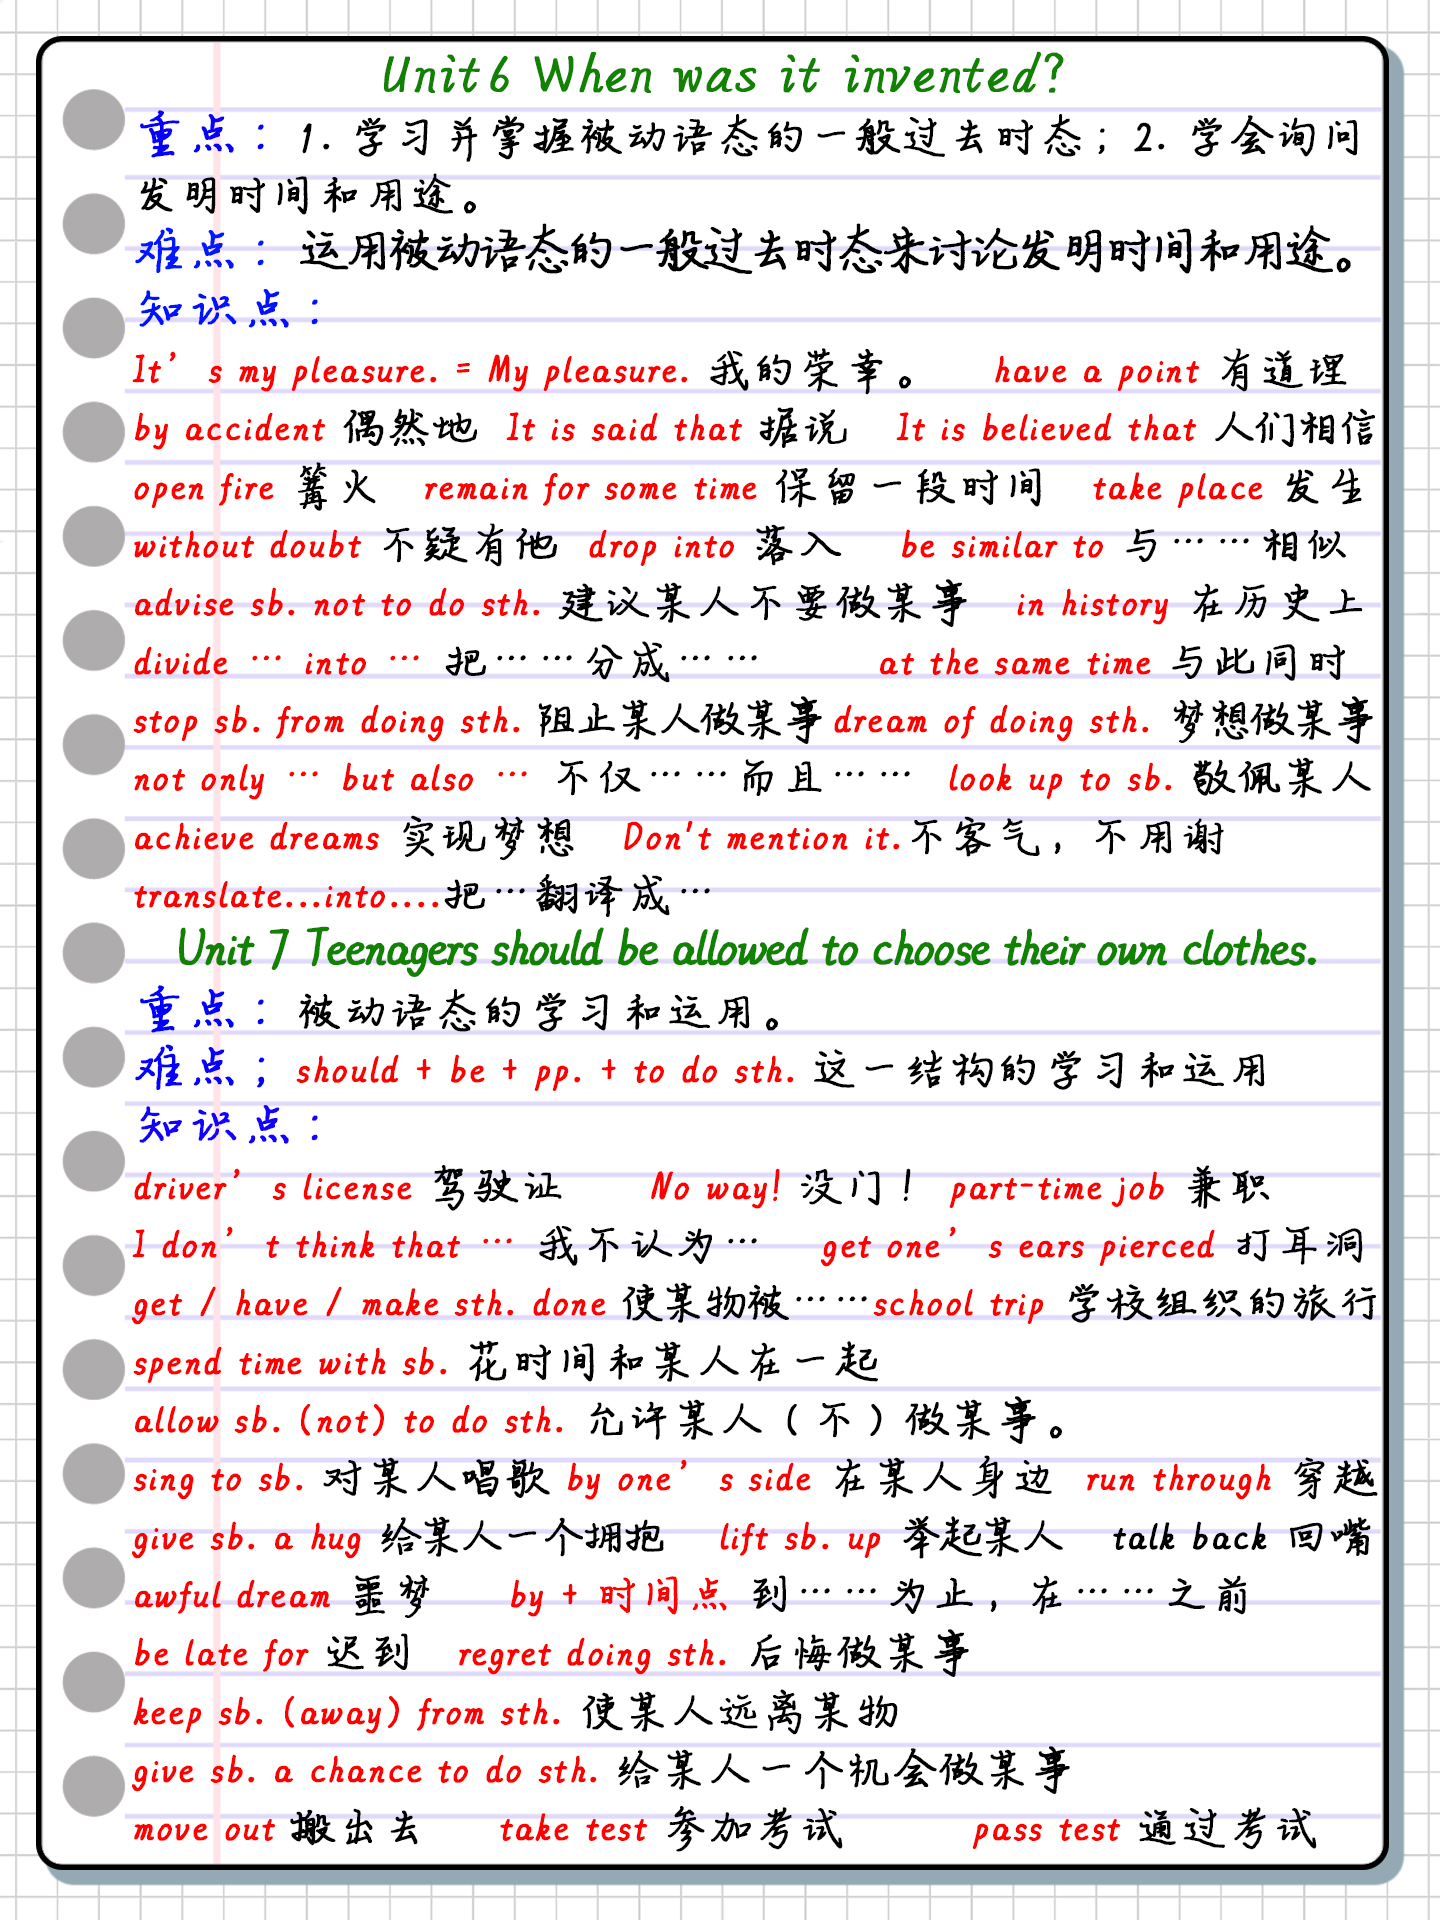 Unit6 When was it invented?
重点：1. 学习并掌握被动语态的一般过去时态；2. 学会询问
发明时间和用途。
难点：运用被动语态的一般过去时态来讨论发明时间和用途。
知识点：
It’s my pleasure. = My pleasure. 我的荣幸。 have a point 有道理
by accident 偶然地 It is said that 据说 It is believed that 人们相信
open fire 篝火 remain for some time 保留一段时间 take place 发生
without doubt 不疑有他 drop into 落入 be similar to 与……相似
advise sb. not to do sth. 建议某人不要做某事 in history 在历史上
divide … into … 把……分成…… at the same time 与此同时
stop sb. from doing sth. 阻止某人做某事 dream of doing sth. 梦想做某事
not only … but also … 不仅……而且…… look up to sb. 敬佩某人
achieve dreams 实现梦想 Don't mention it.不客气，不用谢
translate...into....把…翻译成…
Unit 7 Teenagers should be allowed to choose their own clothes.
重点：被动语态的学习和运用。
难点；should + be + pp. + to do sth. 这一结构的学习和运用
知识点：
driver’s license 驾驶证 No way! 没门！ part-time job 兼职
I don’t think that … 我不认为… get one’s ears pierced 打耳洞
get / have / make sth. done 使某物被……school trip 学校组织的旅行
spend time with sb. 花时间和某人在一起
allow sb. (not) to do sth. 允许某人（不）做某事。
sing to sb. 对某人唱歌 by one’s side 在某人身边 run through 穿越
give sb. a hug 给某人一个拥抱 lift sb. up 举起某人 talk back 回嘴
awful dream 噩梦 by + 时间点 到……为止，在……之前
be late for 迟到 regret doing sth. 后悔做某事
keep sb. (away) from sth. 使某人远离某物
give sb. a chance to do sth. 给某人一个机会做某事
move out 搬出去 take test 参加考试 pass test 通过考试